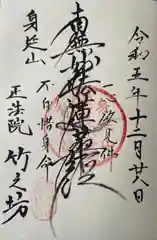 令和五年十二月廿八日
一心欲見佛
南無妙法蓮華経
不自惜身命
身延山
正法院
竹之坊